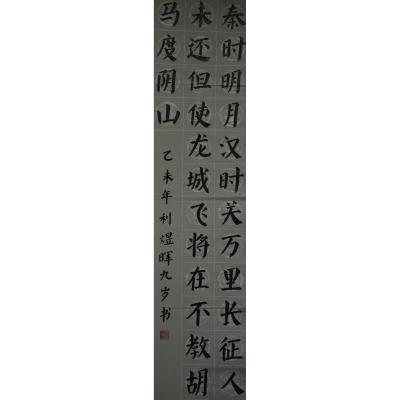 秦时明月汉时关万里长征人
未还但使龙城飞将在不教胡
马度阴山
乙未年利煜晖九岁书